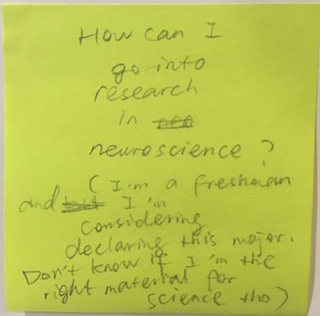 How can I
go into
research
in neo
neuroscience?
(I'm a freshman
and I'm
considering
declaring this major.
Don't know if I'm the
right material for
science tho)